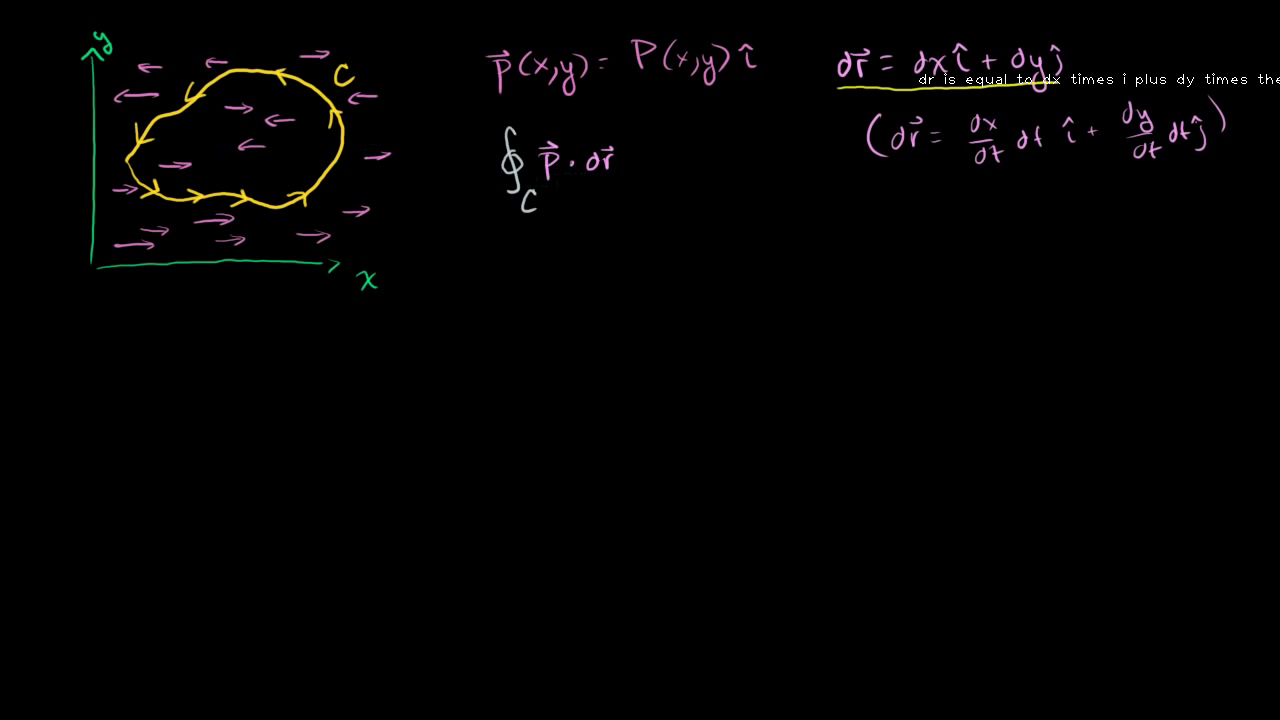 y
C
x
p⃗(x,y) = P(x,y) î
∮_C p⃗ · dr⃗
dr⃗ = dx î + dy ĵ
dr is equal to dx times i plus dy times the
(dr⃗ = dx/dt dt î + dy/dt dt ĵ)